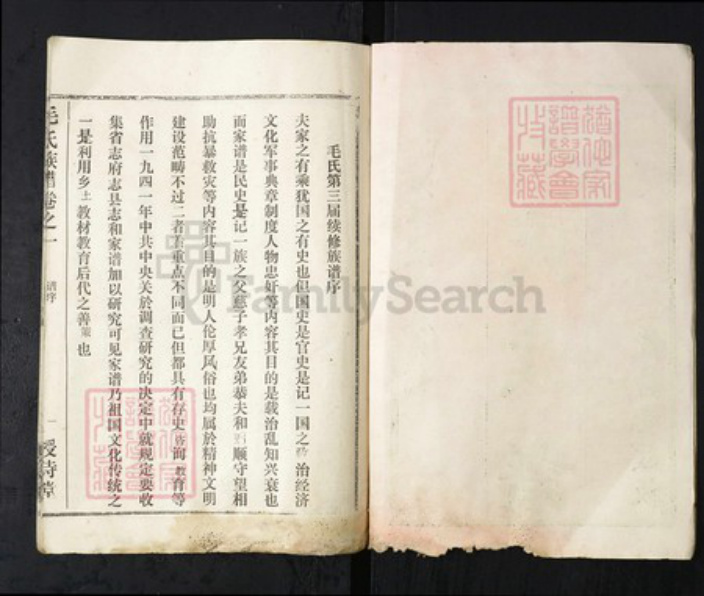 毛氏第三届续修族谱序
夫家之有乘犹国之有史也但国史是官史是记一国之政治经济
文化军事典章制度人物忠奸等内容其目的是载治乱知兴衰也
而家谱是民史是记一族之父慈子孝兄友弟恭夫和顺守望相
助抗暴救灾等内容其目的是明人伦厚风俗也均属於精神文明
建设范畴不过二者重点不同而已但都具有存史咨询教育等
作用一九四一年中共中央关於调查研究的决定中就规定要收
集省志府志县志和家谱加以研究可见家谱乃祖国文化传统之
一是利用乡土教材教育后代之善策也
毛氏族谱卷之一
谱序
一
诗堂
谱学会
收藏
FamilySearch